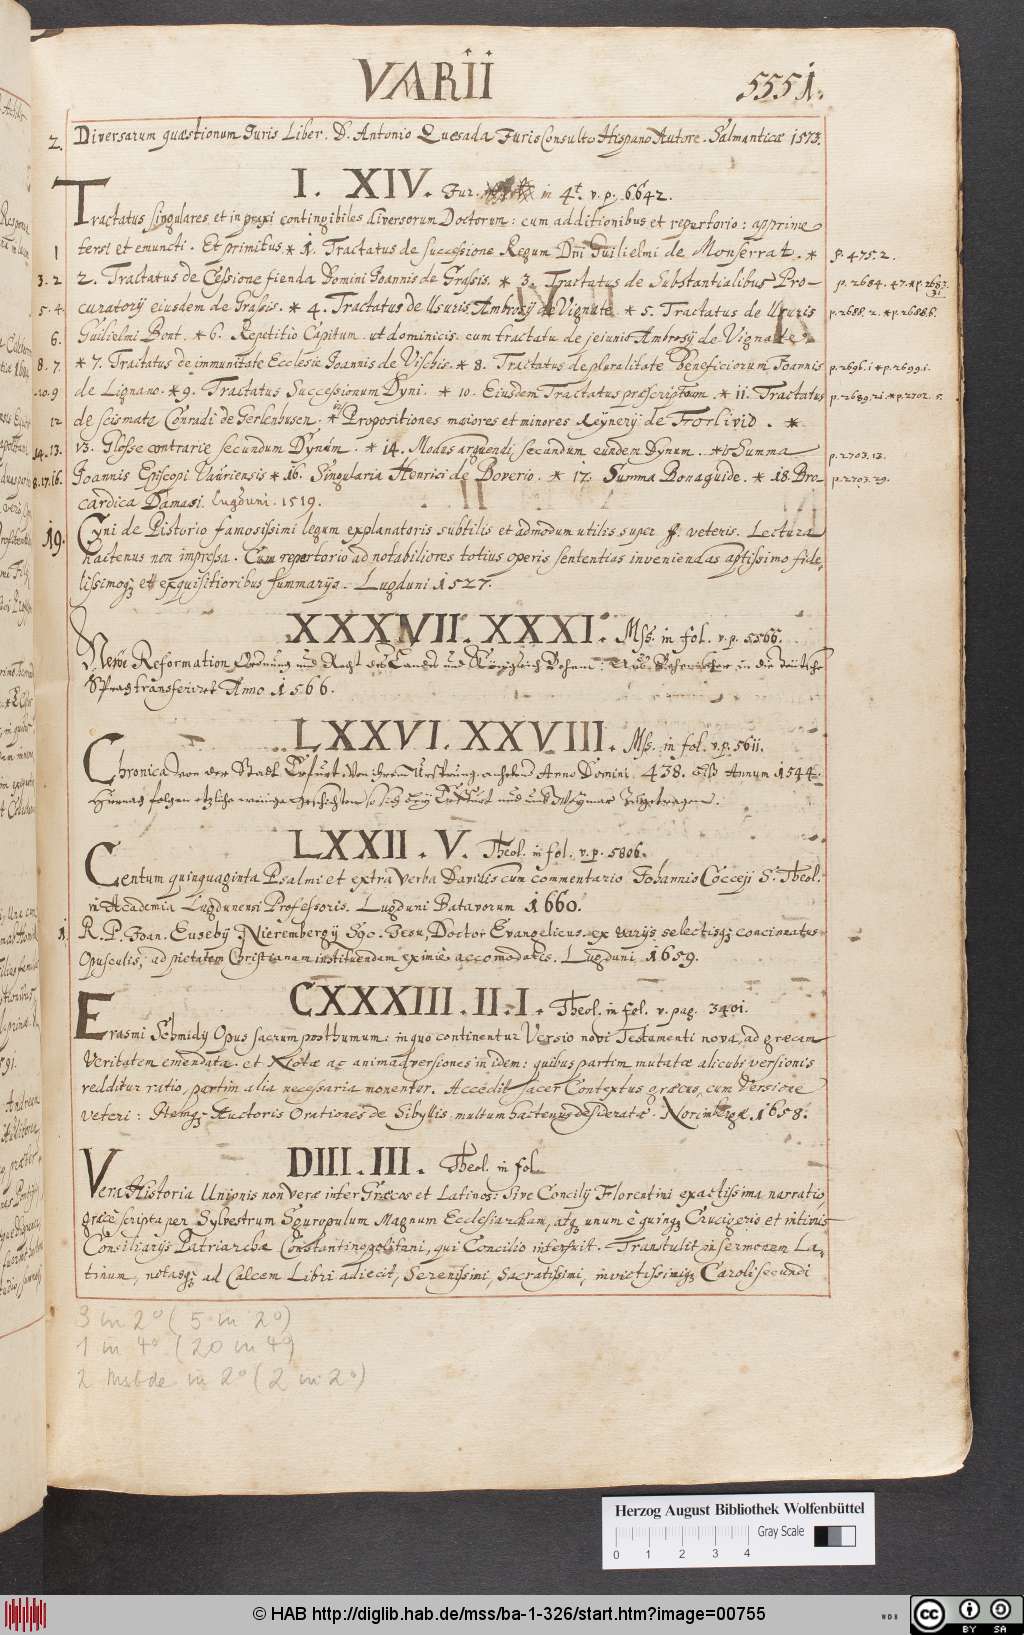 VARII
5551.
2. Diversarum quæstionum Juris Liber. D. Antonio Quesada JurisConsulto Hispano Autore. Salmanticæ 1573.
I. XIV. Jur. in 4t. v. p. 6642.
Tractatus singulares et in praxi contingibiles diversorum Doctorum: cum additionibus et repertorio: apprime
1 tersi et emuncti. Et primitus * 1. Tractatus de successione Regum Dni Guilielmi de Monserrat. * p. 475. 2.
3. 2 2. Tractatus de Cessione fienda Domini Joannis de Grassis. * 3. Tractatus de Substantialibus Pro- p. 2684. 47. * p. 2687. 31.
5. 4. curatorij eiusdem de Grassis. * 4. Tractatus de Usuris Ambrosij de Vignate * 5. Tractatus de Usuris p. 2688. 2. * p. 2688. 6.
6. Guilielmi Bont. * 6. Repetitio Capitum ut dominicis cum tractatu de jeiunio Ambrosij de Vignate
8. 7. * 7. Tractatus de immunitate Ecclesie Joannis de Vischis. * 8. Tractatus de pluralitate Beneficiorum Joannis p. 2696. 1 * p. 2699. 1.
10. 9 de Lignano. * 9. Tractatus Successionum Dyni. * 10. Eiusdem Tractatus præscriptõum. * 11. Tractatus p. 2689. 21. * p. 2702. 5.
12 de scismate Conradi de Gerlenhusen. * 12 Propositiones maiores et minores Reynerij de Forlivio. *
14. 13. 13. Glosse contrarie secundum Dynum. * 14. Modus arguendi secundum eundem Dynum. * 15 Summa p. 2703. 13.
8. 17. 16. Joannis Episcopi Vauriensis * 16. Singularia Henrici de Boverio. * 17. Summa Bonaguide. * 18. Bro- p. 2703. 29.
cardica Damasi. Lugduni. 1519.
19. Cyni de Pistorio famosissimi legum explanatoris subtilis et admodum utilis super ff. veteris. Lectura
hactenus non impressa. Cum repertorio ad notabiliores totius operis sententias inveniendas aptissimo fide-
lissimoq; et exquisitioribus summarijs. Lugduni 1527.
XXXVII. XXXI. Mss. in fol. v. p. 5566.
Newe Reformation Ordnung und Recht des Landes und Königreich Behmen: Aus Behemischer in die Deutsche
Sprag transferiret Anno 1566.
LXXVI. XXVIII. Mss. in fol. v. p. 5611.
Chronica von der Stadt Erfurt. Von ihrem Ursprung. Anno Domini 438. biß Annum 1544.
Hiernach folgen etzliche wenige Geschichten so sich bey Erffurt und umb Weymar zugetragen.
LXXII. V. Theol. in fol. v. p. 5806.
Centum quinquaginta Psalmi et extra verba Davidis cum commentario Johannis Cocceji S. Theol.
in Academia Lugdunensi Professoris. Lugduni Batavorum 1660.
1. R. P. Joan. Eusebij Nierembergij Soc. Jesu, Doctor Evangelicus ex varijs selectisq; concinnatus
Opusculis, ad pietatem Christianam instituendam eximiè accomodatis. Lugduni 1659.
CXXXIII. II. I. Theol. in fol. v. pag. 3401.
Erasmi Schmidij Opus sacrum posthumum: in quo continentur Versio novi Testamenti nova, ad græcam
Veritatem emendata. et Notæ ac animadversiones in idem: quibus partim mutatæ alicubi versionis
redditur ratio, partim alia necessaria monentur. Accedit sacer Contextus græcus, cum Versione
veteri: Itemq; Auctoris Orationes de Sibyllis multum hactenus desideratæ. Norimbergæ. 1658.
DIII. III. Theol. in fol.
Vera Historia Unionis non veræ inter Græcos et Latinos: Sive Concilij Florentini exactissima narratio,
græcè scripta per Sylvestrum Sguropulum Magnum Ecclesiarcham, atq; unum è quinq; Crucigeris et intimis
Consiliarijs Patriarchæ Constantinopolitani, qui Concilio interfuit. Transtulit in sermonem La-
tinum, notasq; ad Calcem Libri adiecit, Serenissimi, Sacratissimi, invictissimiq; Caroli secundi
3 in 2° (5 in 2°)
1 in 4° (20 in 4°)
2 Msbde in 2° (2 in 2°)
Herzog August Bibliothek Wolfenbüttel
Gray Scale
0 1 2 3 4
© HAB http://diglib.hab.de/mss/ba-1-326/start.htm?image=00755
WDB
cc BY SA